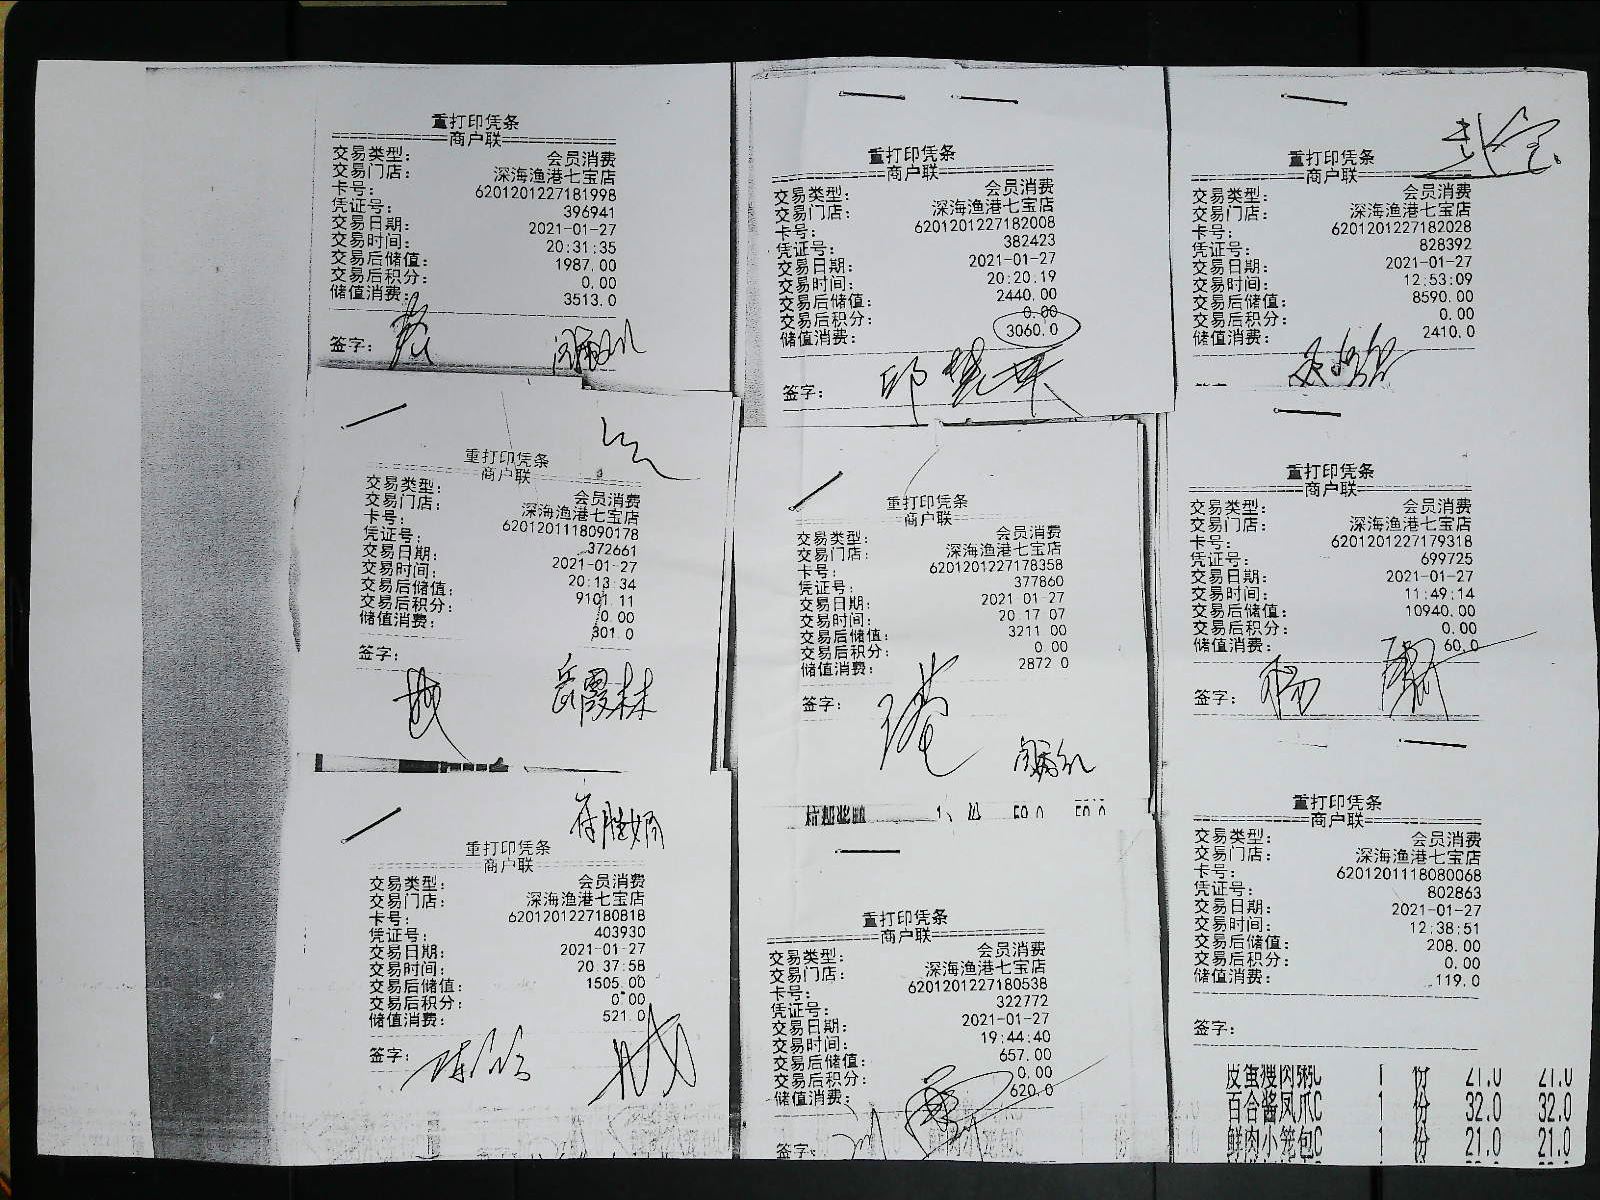 重打印凭条
商户联
交易类型： 会员消费
交易门店： 深海渔港七宝店
卡号： 6201201227181998
凭证号： 396941
交易日期： 2021-01-27
交易时间： 20:31:35
交易后储值： 1987.00
交易后积分： 0.00
储值消费： 3513.0
签字：
重打印凭条
商户联
交易类型： 会员消费
交易门店： 深海渔港七宝店
卡号： 6201201227182008
凭证号： 382423
交易日期： 2021-01-27
交易时间： 20:20:19
交易后储值： 2440.00
交易后积分： 0.00
储值消费： 3060.0
签字：
重打印凭条
商户联
交易类型： 会员消费
交易门店： 深海渔港七宝店
卡号： 6201201227182028
凭证号： 828392
交易日期： 2021-01-27
交易时间： 12:53:09
交易后储值： 8590.00
交易后积分： 0.00
储值消费： 2410.0
重打印凭条
商户联
交易类型： 会员消费
交易门店： 深海渔港七宝店
卡号： 6201201118090178
凭证号： 372661
交易日期： 2021-01-27
交易时间： 20:13:34
交易后储值： 9101.11
交易后积分： 0.00
储值消费： 301.0
签字： 岳霞林
重打印凭条
商户联
交易类型： 会员消费
交易门店： 深海渔港七宝店
卡号： 6201201227178358
凭证号： 377860
交易日期： 2021-01-27
交易时间： 20:17:07
交易后储值： 3211.00
交易后积分： 0.00
储值消费： 2872.0
签字：
重打印凭条
商户联
交易类型： 会员消费
交易门店： 深海渔港七宝店
卡号： 6201201227179318
凭证号： 699725
交易日期： 2021-01-27
交易时间： 11:49:14
交易后储值： 10940.00
交易后积分： 0.00
储值消费： 60.0
签字：
重打印凭条
商户联
交易类型： 会员消费
交易门店： 深海渔港七宝店
卡号： 6201201227180818
凭证号： 403930
交易日期： 2021-01-27
交易时间： 20:37:58
交易后储值： 1505.00
交易后积分： 0.00
储值消费： 521.0
签字：
重打印凭条
商户联
交易类型： 会员消费
交易门店： 深海渔港七宝店
卡号： 6201201227180538
凭证号： 322772
交易日期： 2021-01-27
交易时间： 19:44:40
交易后储值： 657.00
交易后积分： 0.00
储值消费： 620.0
签字：
重打印凭条
商户联
交易类型： 会员消费
交易门店： 深海渔港七宝店
卡号： 6201201118080068
凭证号： 802863
交易日期： 2021-01-27
交易时间： 12:38:51
交易后储值： 208.00
交易后积分： 0.00
储值消费： 119.0
签字：
皮蛋瘦肉粥C 1 份 21.0 21.0
百合酱凤爪C 1 份 32.0 32.0
鲜肉小笼包C 1 份 21.0 21.0